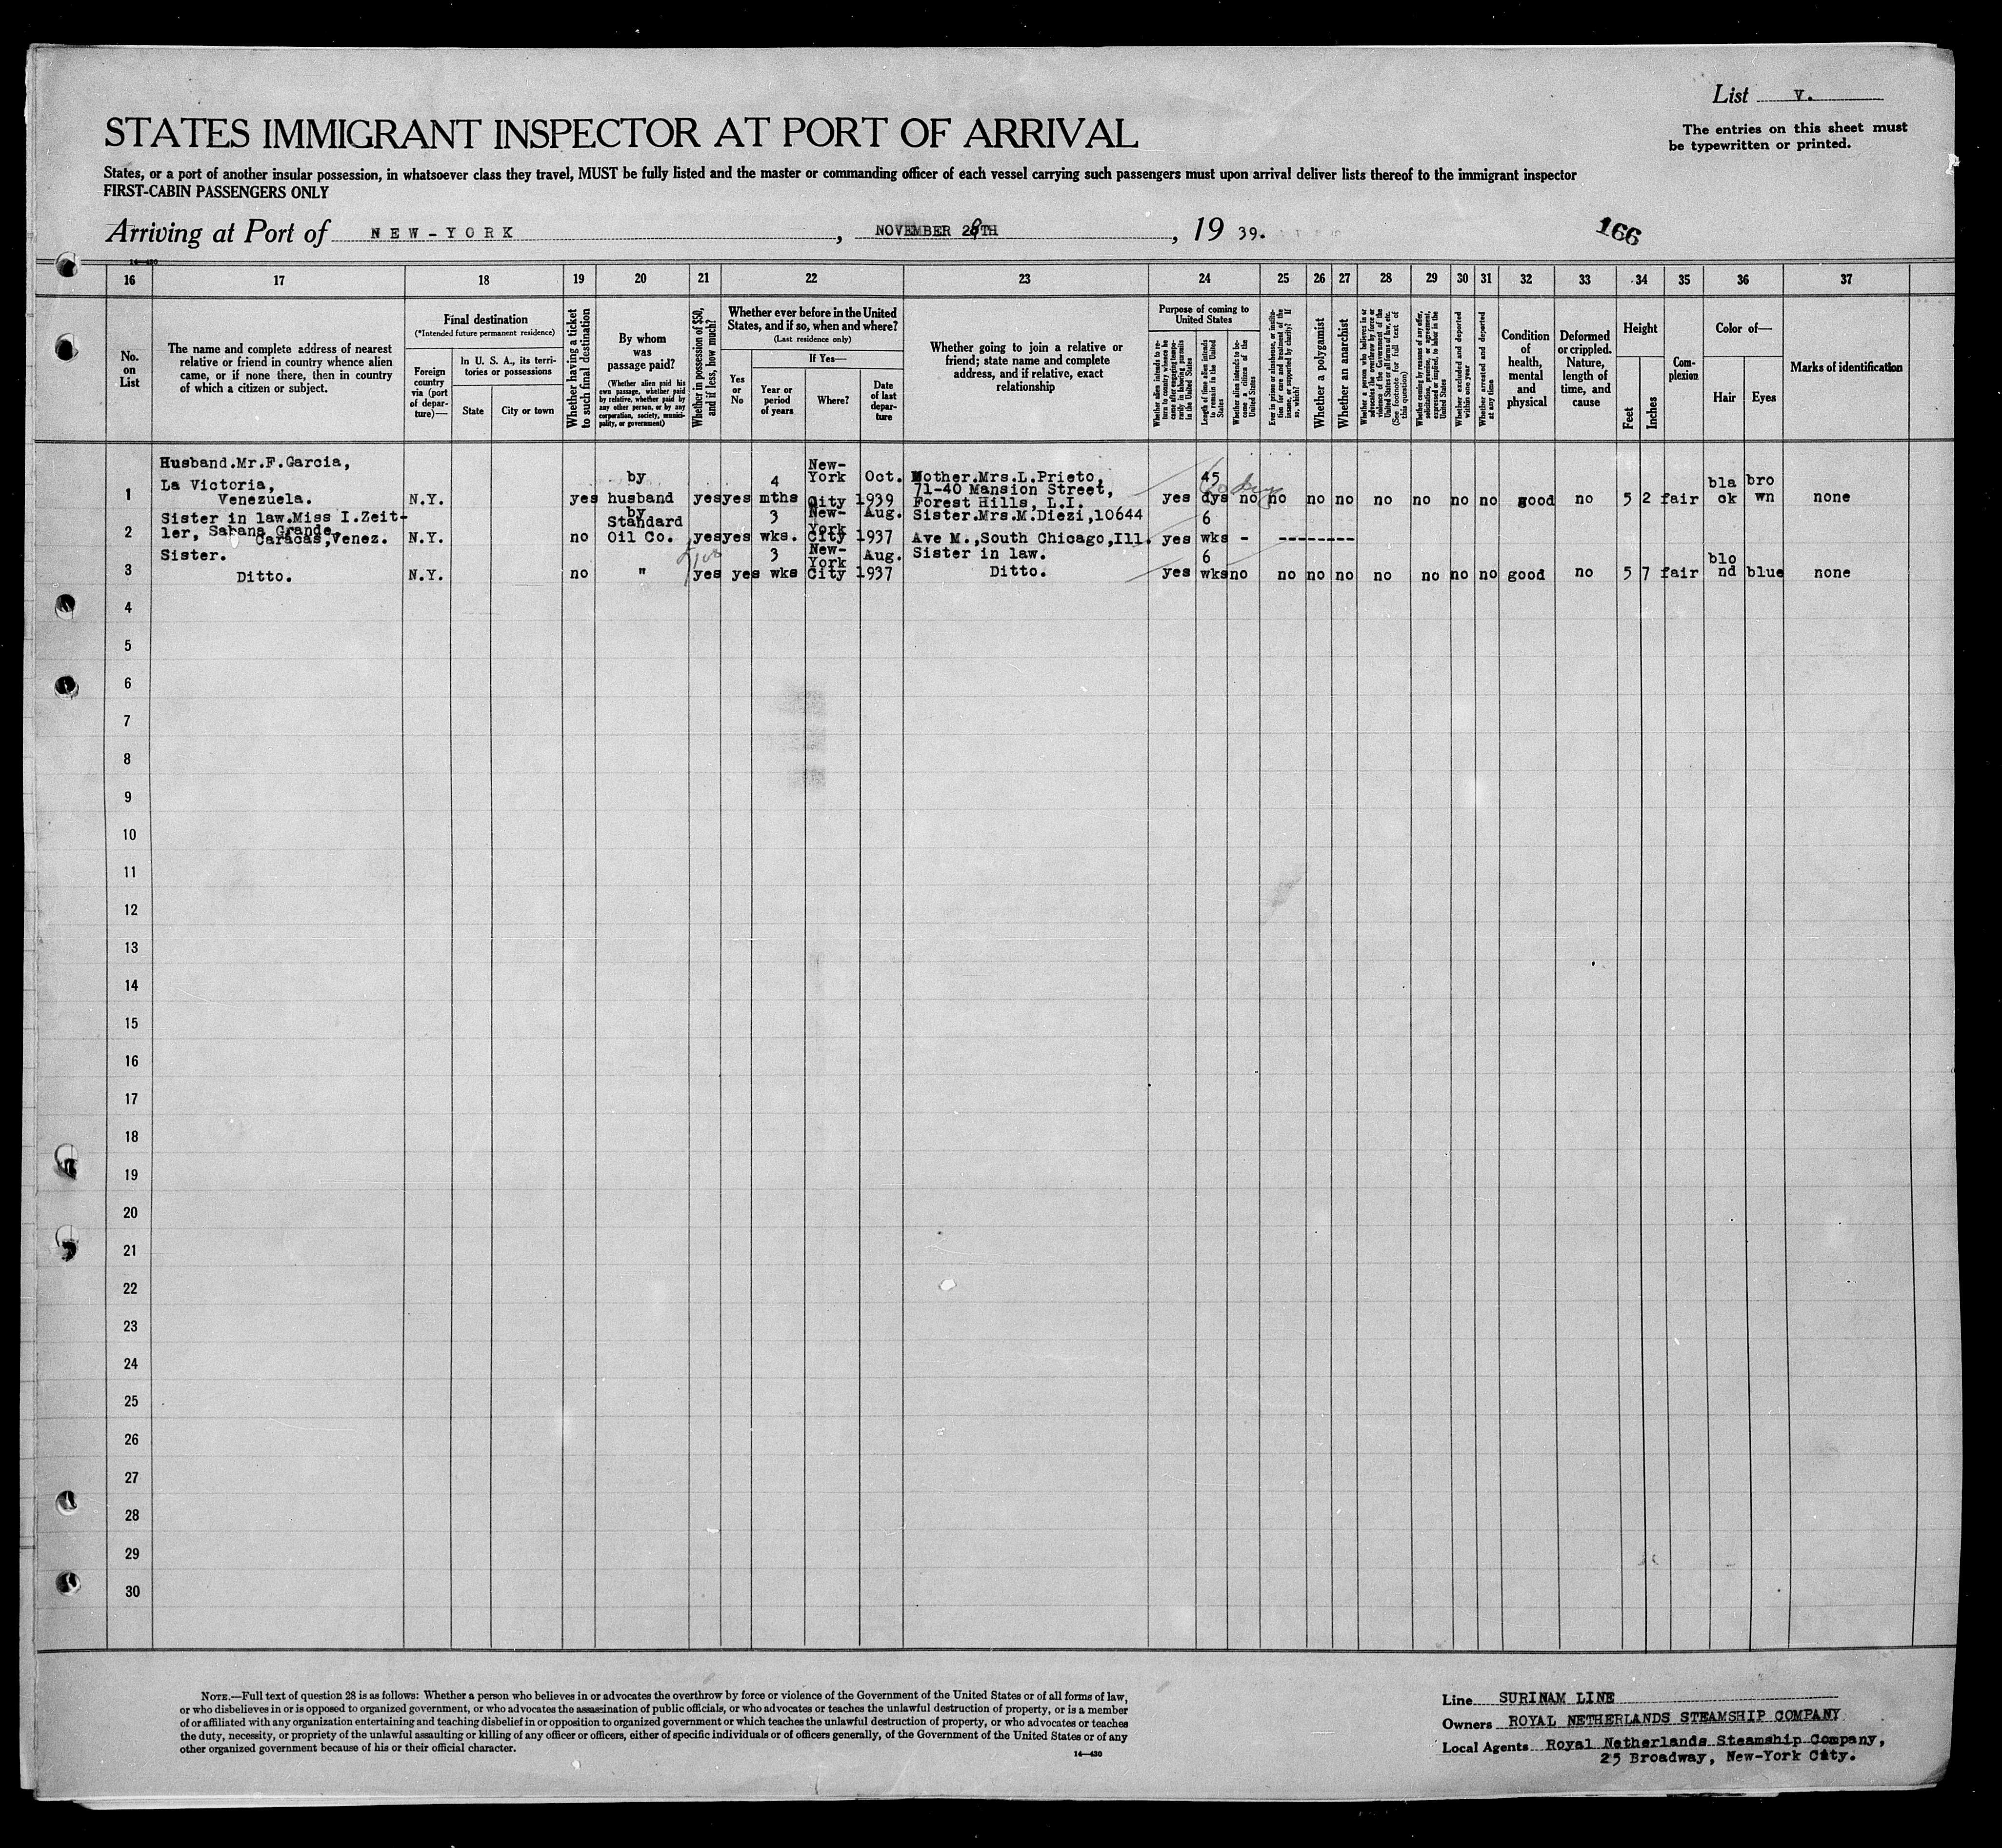 List V.
The entries on this sheet must
be typewritten or printed.
STATES IMMIGRANT INSPECTOR AT PORT OF ARRIVAL
States, or a port of another insular possession, in whatsoever class they travel, MUST be fully listed and the master or commanding officer of each vessel carrying such passengers must upon arrival deliver lists thereof to the immigrant inspector
FIRST-CABIN PASSENGERS ONLY
Arriving at Port of NEW-YORK, NOVEMBER 28TH, 19 39.
166
14-430
16 17 18 19 20 21 22 23 24 25 26 27 28 29 30 31 32 33 34 35 36 37
No. on List
The name and complete address of nearest
relative or friend in country whence alien
came, or if none there, then in country
of which a citizen or subject.
Final destination
(*Intended future permanent residence)
Foreign country via (port of departure)—
In U. S. A., its territories or possessions
State
City or town
Whether having a ticket to such final destination
By whom was passage paid?
(Whether alien paid his own passage, whether paid by relative, whether paid by any other person, or by any corporation, society, municipality, or government)
Whether in possession of $50, and if less, how much?
Whether ever before in the United
States, and if so, when and where?
(Last residence only)
Yes or No
If Yes—
Year or period of years
Where?
Date of last departure
Whether going to join a relative or
friend; state name and complete
address, and if relative, exact
relationship
Purpose of coming to
United States
Whether alien intends to return to country whence he came after engaging temporarily in laboring pursuits in the United States
Length of time alien intends to remain in the United States
Whether alien intends to become a citizen of the United States
Ever in prison or almshouse, or institution for care and treatment of the insane, or supported by charity? If so, which?
Whether a polygamist
Whether an anarchist
Whether a person who believes in or advocates the overthrow by force or violence of the Government of the United States or all forms of law, etc. (See footnote for full text of this question)
Whether coming by reasons of any offer, solicitation, promise, or agreement, expressed or implied, to labor in the United States
Whether excluded and deported within one year
Whether arrested and deported at any time
Condition of health, mental and physical
Deformed or crippled. Nature, length of time, and cause
Height
Feet
Inches
Complexion
Color of—
Hair
Eyes
Marks of identification
1 Husband.Mr.F.Garcia, La Victoria, Venezuela. N.Y. yes by husband yes yes 4 mths New-York City Oct. 1939 Mother.Mrs.L.Prieto, 71-40 Mansion Street, Forest Hills, L.I. yes 45 dys no no no no no no no no good no 5 2 fair bla ck bro wn none
2 Sister in law.Miss I.Zeit-ler, Sabana Grande, Caracas,Venez. N.Y. no by Standard Oil Co. yes yes 3 wks. New-York City Aug. 1937 Sister.Mrs.M.Diezi,10644 Ave M.,South Chicago,Ill. yes 6 wks - --------
3 Sister. Ditto. N.Y. no " yes yes 3 wks New-York City Aug. 1937 Sister in law. Ditto. yes 6 wks no no no no no no no no good no 5 7 fair blo nd blue none
4
5
6
7
8
9
10
11
12
13
14
15
16
17
18
19
20
21
22
23
24
25
26
27
28
29
30
NOTE.—Full text of question 28 is as follows: Whether a person who believes in or advocates the overthrow by force or violence of the Government of the United States or of all forms of law,
or who disbelieves in or is opposed to organized government, or who advocates the assassination of public officials, or who advocates or teaches the unlawful destruction of property, or is a member
of or affiliated with any organization entertaining and teaching disbelief in or opposition to organized government or which teaches the unlawful destruction of property, or who advocates or teaches
the duty, necessity, or propriety of the unlawful assaulting or killing of any officer or officers, either of specific individuals or of officers generally, of the Government of the United States or of any
other organized government because of his or their official character.
14-430
Line SURINAM LINE
Owners ROYAL NETHERLANDS STEAMSHIP COMPANY
Local Agents Royal Netherlands Steamship Company,
25 Broadway, New-York City.